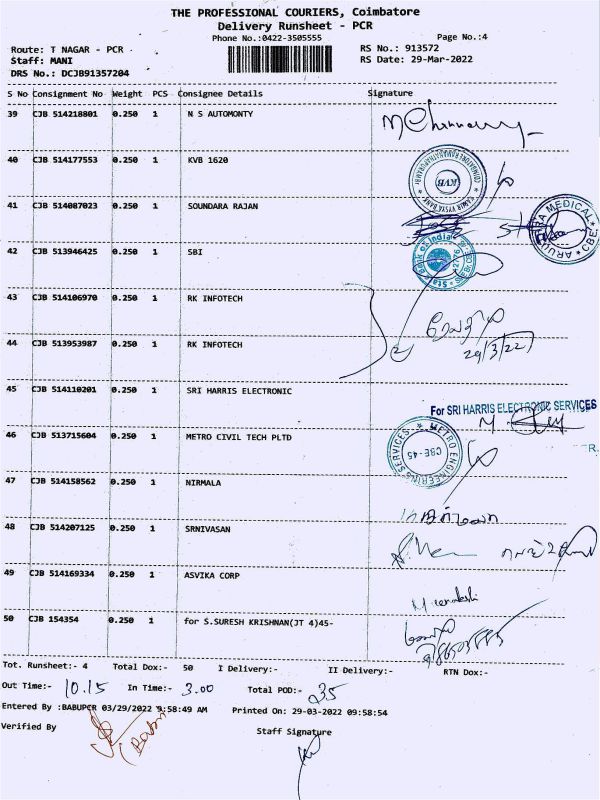 THE PROFESSIONAL COURIERS, Coimbatore
Delivery Runsheet - PCR
Phone No.:0422-3505555
Page No.:4
Route: T NAGAR - PCR
RS No.: 913572
Staff: MANI
RS Date: 29-Mar-2022
DRS No.: DCJB91357204
S No Consignment No Weight PCS Consignee Details Signature
39 CJB 514218801 0.250 1 N S AUTOMONTY
40 CJB 514177553 0.250 1 KVB 1620
KVB
41 CJB 514087023 0.250 1 SOUNDARA RAJAN
MEDICAL
42 CJB 513946425 0.250 1 SBI
State Bank of India
43 CJB 514106970 0.250 1 RK INFOTECH
44 CJB 513953987 0.250 1 RK INFOTECH
29/3/22
45 CJB 514110201 0.250 1 SRI HARRIS ELECTRONIC
For SRI HARRIS ELECTRONIC SERVICES
46 CJB 513715604 0.250 1 METRO CIVIL TECH PLTD
METRO ENGINEERING SERVICES
CBE - 45
47 CJB 514158562 0.250 1 NIRMALA
48 CJB 514207125 0.250 1 SRNIVASAN
49 CJB 514169334 0.250 1 ASVIKA CORP
50 CJB 154354 0.250 1 for S.SURESH KRISHNAN(JT 4)45-
Tot. Runsheet:- 4 Total Dox:- 50 I Delivery:- II Delivery:- RTN Dox:-
Out Time:- 10.15 In Time:- 3.00 Total POD:- 35
Entered By :BABUPCR 03/29/2022 9:58:49 AM Printed On: 29-03-2022 09:58:54
Verified By
Staff Signature
(Babu)